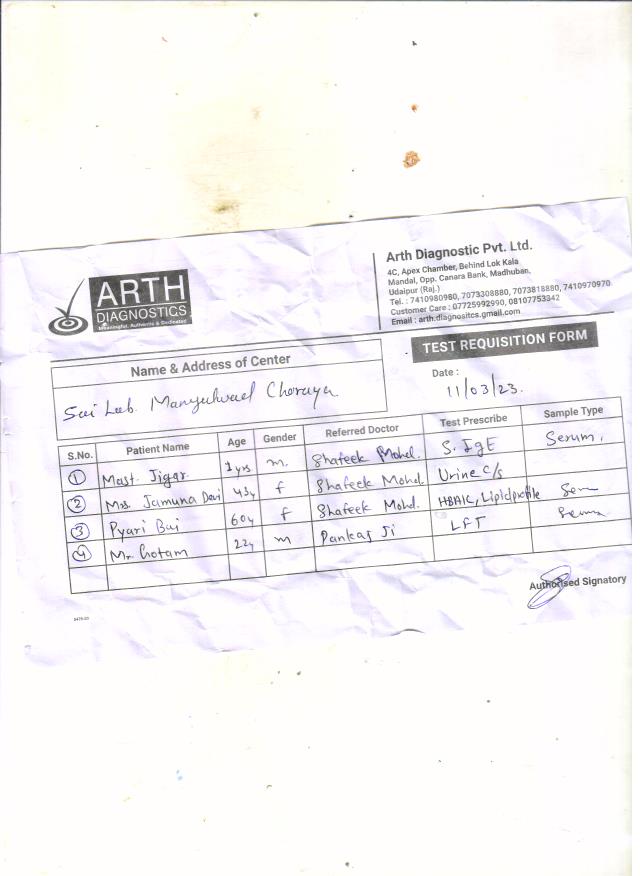 ARTH
DIAGNOSTICS
Meaningful, Authentic & Dedicated
Arth Diagnostic Pvt. Ltd.
4C, Apex Chamber, Behind Lok Kala
Mandal, Opp. Canara Bank, Madhuban,
Udaipur (Raj.)
Tel. : 7410980980, 7073308880, 7073818880, 7410970970
Customer Care : 07725992990, 08107753342
Email : arth.diagnositcs.gmail.com
TEST REQUISITION FORM
Name & Address of Center
Date :
11/03/23.
Sai Lab.
S.No. Patient Name Age Gender Referred Doctor Test Prescribe Sample Type
1 Mast. Jigar. 1 yrs m. Shafeek Mohd. S. IgE Serum.
2 Mrs. Jamuna Devi 43y f Shafeek Mohd. Urine C/s
3 Pyari Bai 60y f Shafeek Mohd. HBA1C, Lipid profile
4 Mr. 22y m Pankaj Ji LFT Serum
Authorised Signatory